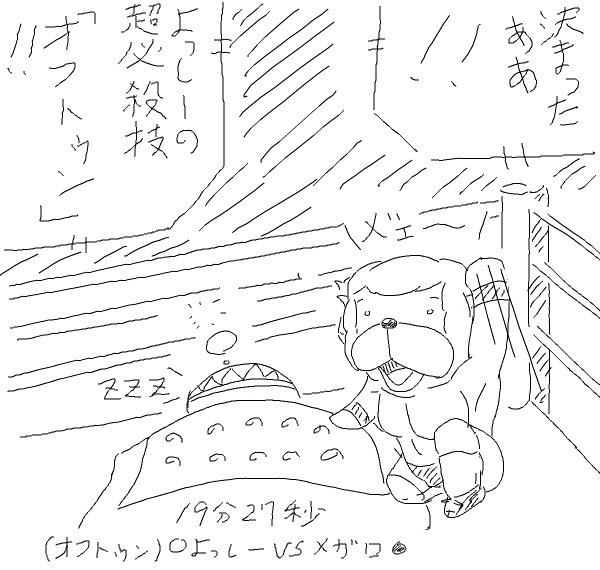 決まった
ああ
!!
よっしーの
超必殺技
「オフトゥン」
!!
メ゙ェ〜
ZZZ
19分27秒
(オフトゥン)○よっしーVSメガロ●